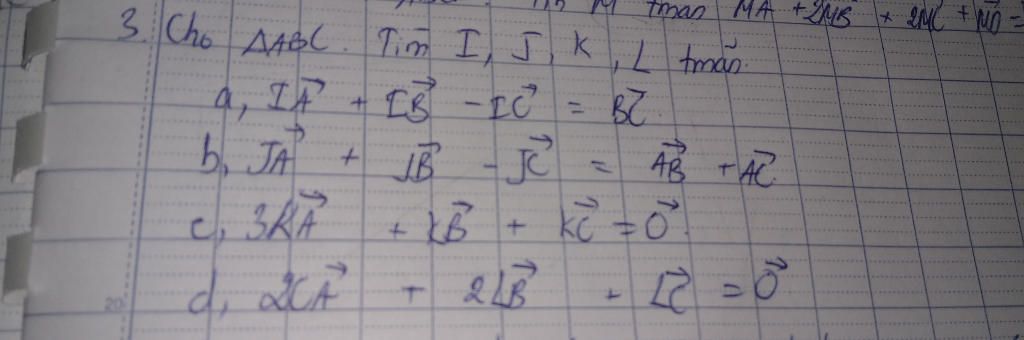 Tìm M tmãn MA + 2MB + 2MC + MD =
3. Cho ΔABC. Tìm I, J, K, L tmãn.
a, IA + IB - IC = BC.
b, JA + JB - JC = AB + AC
c, 3KA + KB + KC = O.
d, 2LA + 2LB - LC = O
20